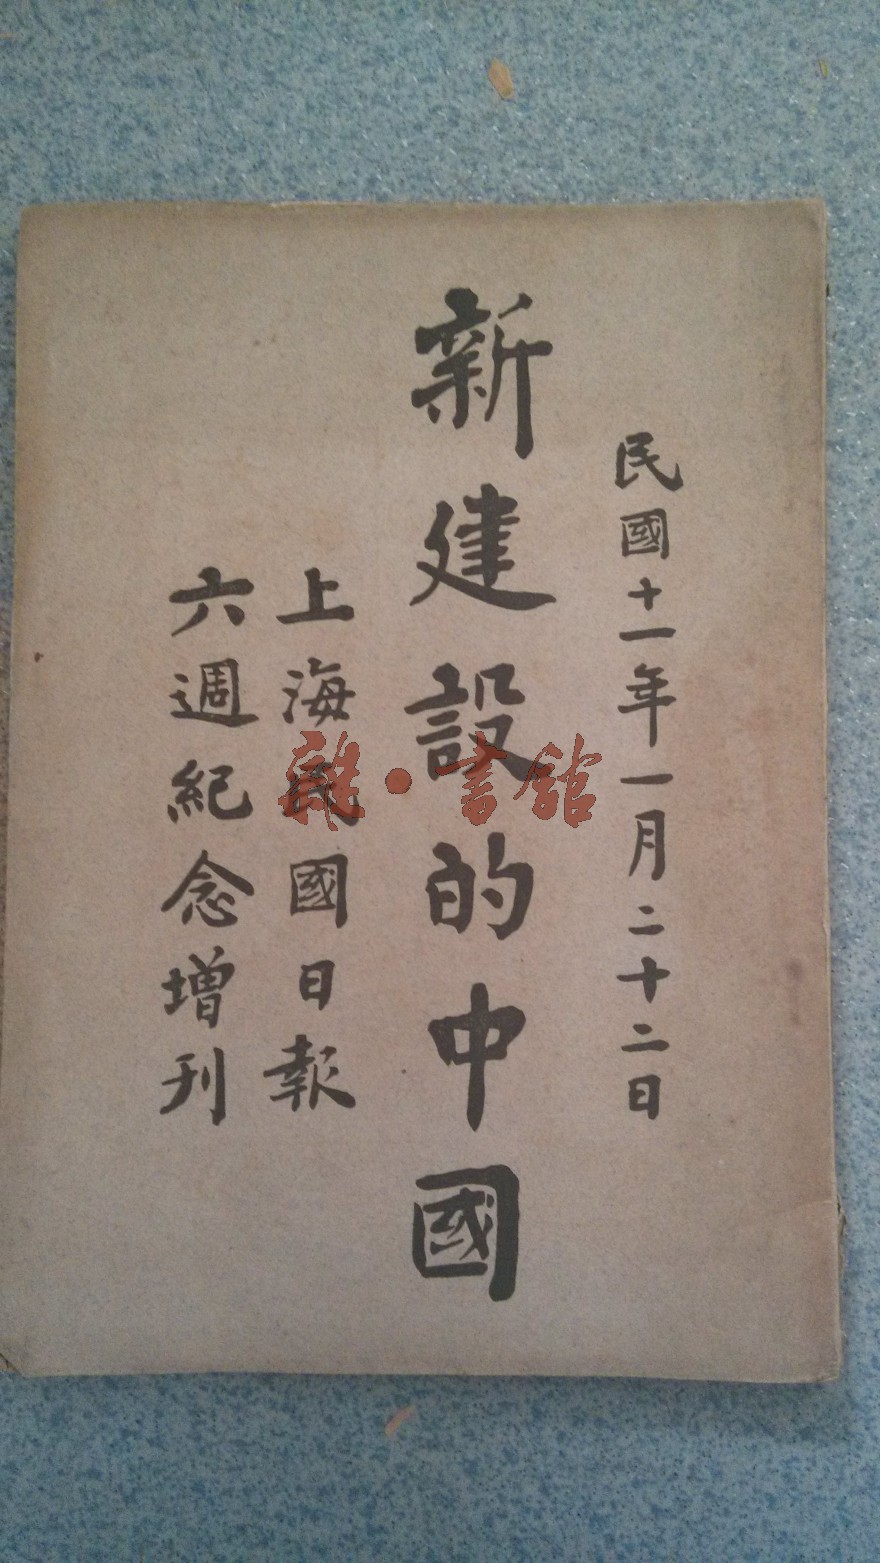 民國十一年一月二十二日
新建設的中國
上海民國日報
六週紀念增刊
雜·書館